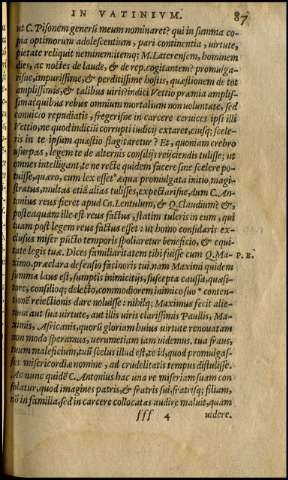 IN VATINIVM. 87
ut C. Pisonem generũ meum nominaret? qui in summa co-
pia optimorum adolescentium, pari continentia, uirtute,
pietate reliquit neminem: itemq; M. Laterensem, hominem
dies, ac noctes de laude, & de rep. cogitantem? promulga-
risne, impurissime, & perditissime hostis, quæstionem de tot
amplissimis, & talibus uiris? indici Vettio præmia amplis-
sima? quibus rebus omnium mortalium non uoluntate, sed
conuicio repudiatis, fregerisne in carcere ceruices ipsi illi
Vettio, ne quod indicium corrupti iudicij extaret, eiusq; scele-
ris in te ipsum quæstio flagitaretur? Et, quoniam crebro
usurpas, legem te de alternis consilijs reijciendis tulisse; ut
omnes intelligant, te ne recte quidem facere sine scelere po-
tuisse, quæro, cum lex esset æqua promulgata initio magi-
stratus, multas etiã alias tulisses, expectarisne, dum C. An-
tonius reus fieret apud Cn. Lentulum, & Q. Claudium? &,
posteaquam ille est reus factus, statim tuleris in eum, qui
tuam post legem reus factus esset: ut homo consularis ex-
clusus miser pũcto temporis spoliaretur beneficio, & equi-
tate legis tuæ. Dices familiaritatem tibi fuisse cum Q. Ma-
P. E.
ximo. præclara defensio facinoris tui. nam Maxima quidem
summa laus est, sumptis inimicitijs, suscepta caussa, quæsi-
tore, consilioq; delecto, commodiorem inimico suo
reiectionis dare noluisse: nihilq; Maximus fecit alie-
num aut sua uirtute, aut illis uiris clarissimis Paullis, Ma-
ximis, Africanis, quorũ gloriam huius uirtute renouatam
non modo speramus, uerumetiam iam uidemus. tua fraus,
tuum maleficium, tuũ scelus illud est, te id, quod promulgas-
ses misericordiæ nomine, ad crudelitatis tempus distulisse.
Ac nunc quidẽ C. Antonius hac una re miseriam suam con-
solatur, quod imagines patris, & fratris sui, fratrisq; filiam,
nõ in familia, sed in carcere collocatas audire maluit, quam
fff 4 uidere.